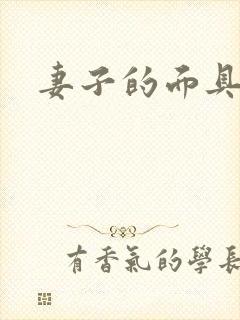 妻子的面具
有香氣的學長